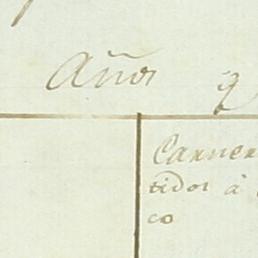 Años
Carner
tidos à
co